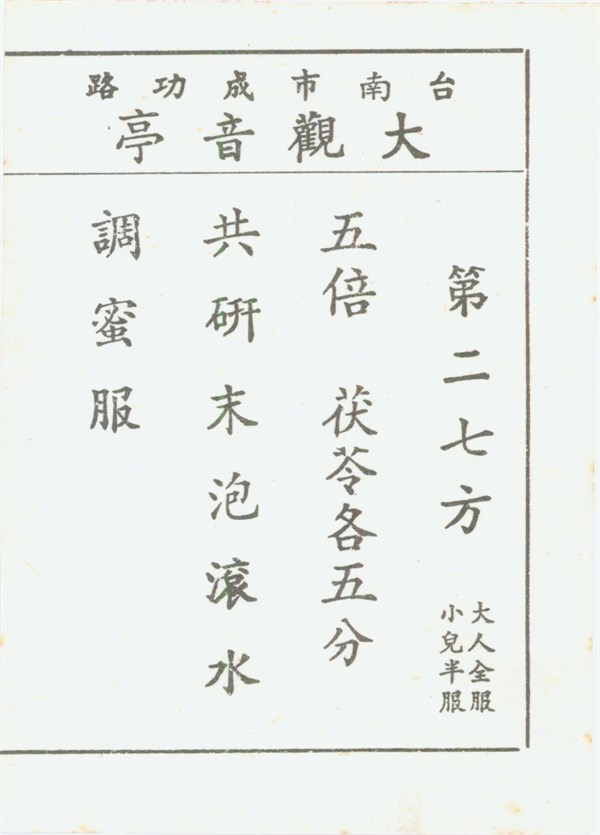 台南市成功路
大觀音亭
第二七方
大人全服
小兒半服
五倍 茯苓各五分
共研末泡滾水
調蜜服